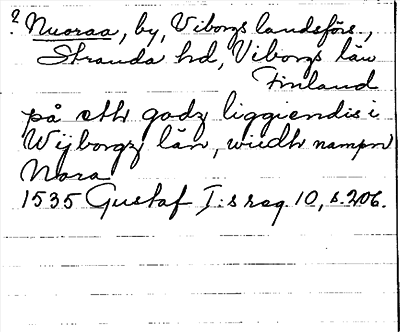 ? Nuoraa, by, Viborgs landsförs.,
Stranda hd, Viborgs län
Finland
på eth godz liggiendis i
Wijborgz län, widh nampn
Nora
1535 Gustaf I:s reg. 10, s. 206.